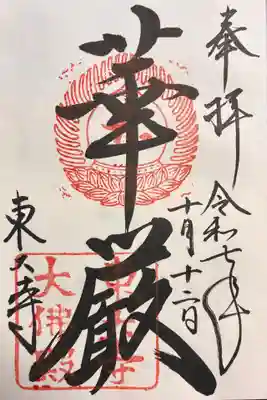 奉拝
令和七年
十月十二日
華厳
東大寺
東大寺
大佛殿